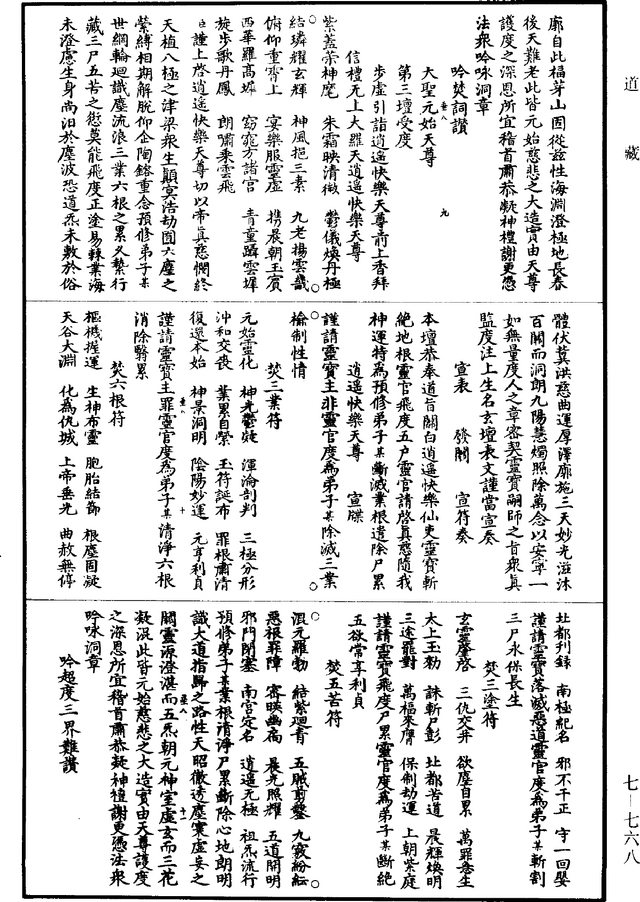 道藏
廓自此福芽山固從茲性海淵澄極地長春
後天難老此皆元始慈悲之大造實由天尊
護度之深恩所宜稽首肅恭凝神禮謝更憑
法衆吟咏洞章
吟焚詞讚
大聖元始天尊
第三壇受度
步虛引詣逍遥快樂天尊前上香拜
信禮无上大羅天逍遥快樂天尊
紫蓋宗神麾 朱霜映清微 鬱儀煥丹極
結璘耀玄輝 神風挹三素 九老揚雲璣
俯仰重霄上 宴樂服靈虛 携晨朝玉賓
西華羅高墀 窈窕方諸宫 青童躡雲墀
旋步歌丹鳳 朗嘯乘雲飛
臣謹上啓逍遥快樂天尊切以帝真慈憫終
天植八極之津梁衆生顛冥浩劫囿六塵之
縈縛相期解脫仰企陶鎔重念預修弟子某
世綱輪廻識塵流浪三業六根之累久繫行
藏三尸五苦之愆莫能飛度正塗易棘業海
未澄慮生身尚汩於塵波恐道炁未敷於俗
體伏冀洪慈曲運厚澤廓施三天妙光滋沐
百關而洞朗九陽慧燭照除萬念以安寧一
如無量度人之章密契靈寶嗣師之旨衆真
監度注上生名玄壇表文謹當宣奏
宣表 發關 宣符奏
本壇恭奉道旨關白逍遥快樂仙吏靈寶斬
絶地根靈官飛度五户靈官請啓真慈隨我
神運特爲預修弟子某斷滅業根遣除尸累
逍遥快樂天尊 宣牒
謹請靈寶主非靈官度爲弟子某除滅三業
檢制性情
焚三業符
元始靈化 神光鬱凝 渾淪剖判 三極分形
沖和交喪 業累自縈 玉符誕布 罪根肅清
復還本始 神景洞明 陰陽妙運 元亨利貞
謹請靈寶主罪靈官度爲弟子某清淨六根
消除翳累
焚六根符
樞機握運 生神布靈 胞胎結篩 根塵固凝
天谷大淵 化爲仇城 上帝垂光 曲赦無停
北都刋録 南極紀名 邪不干正 守一回嬰
謹請靈寶落滅惡道靈官度爲弟子某斬割
三尸永保長生
焚三塗符
玄靈肇啓 三仇交并 欲塵自累 萬罪叅生
太上玉勑 誅斬尸彭 北都苦道 晨輝煥明
三途罷對 萬福來膺 保制劫運 上朝紫庭
謹請靈寶飛度尸累靈官度爲弟子某斷絶
五欲常享利貞
焚五苦符
混元羅勃 結紫廻青 五賊剪鑿 九竅紛紜
惡根罪障 密映幽扃 晨光照耀 五道開明
邪門閉塞 南宫定名 逍遥无極 祖炁流行
預修弟子某業根清淨尸累斷除心地朗明
識大道指歸之路性天昭徹透塵寰虛妄之
關靈源澄湛而五炁朝元神室虛玄而三花
凝㳷此皆元始慈悲之大造實由天尊護度
之深恩所宜稽首肅恭凝神禮謝更憑法衆
吟咏洞章
吟超度三界難讚
七—七六八